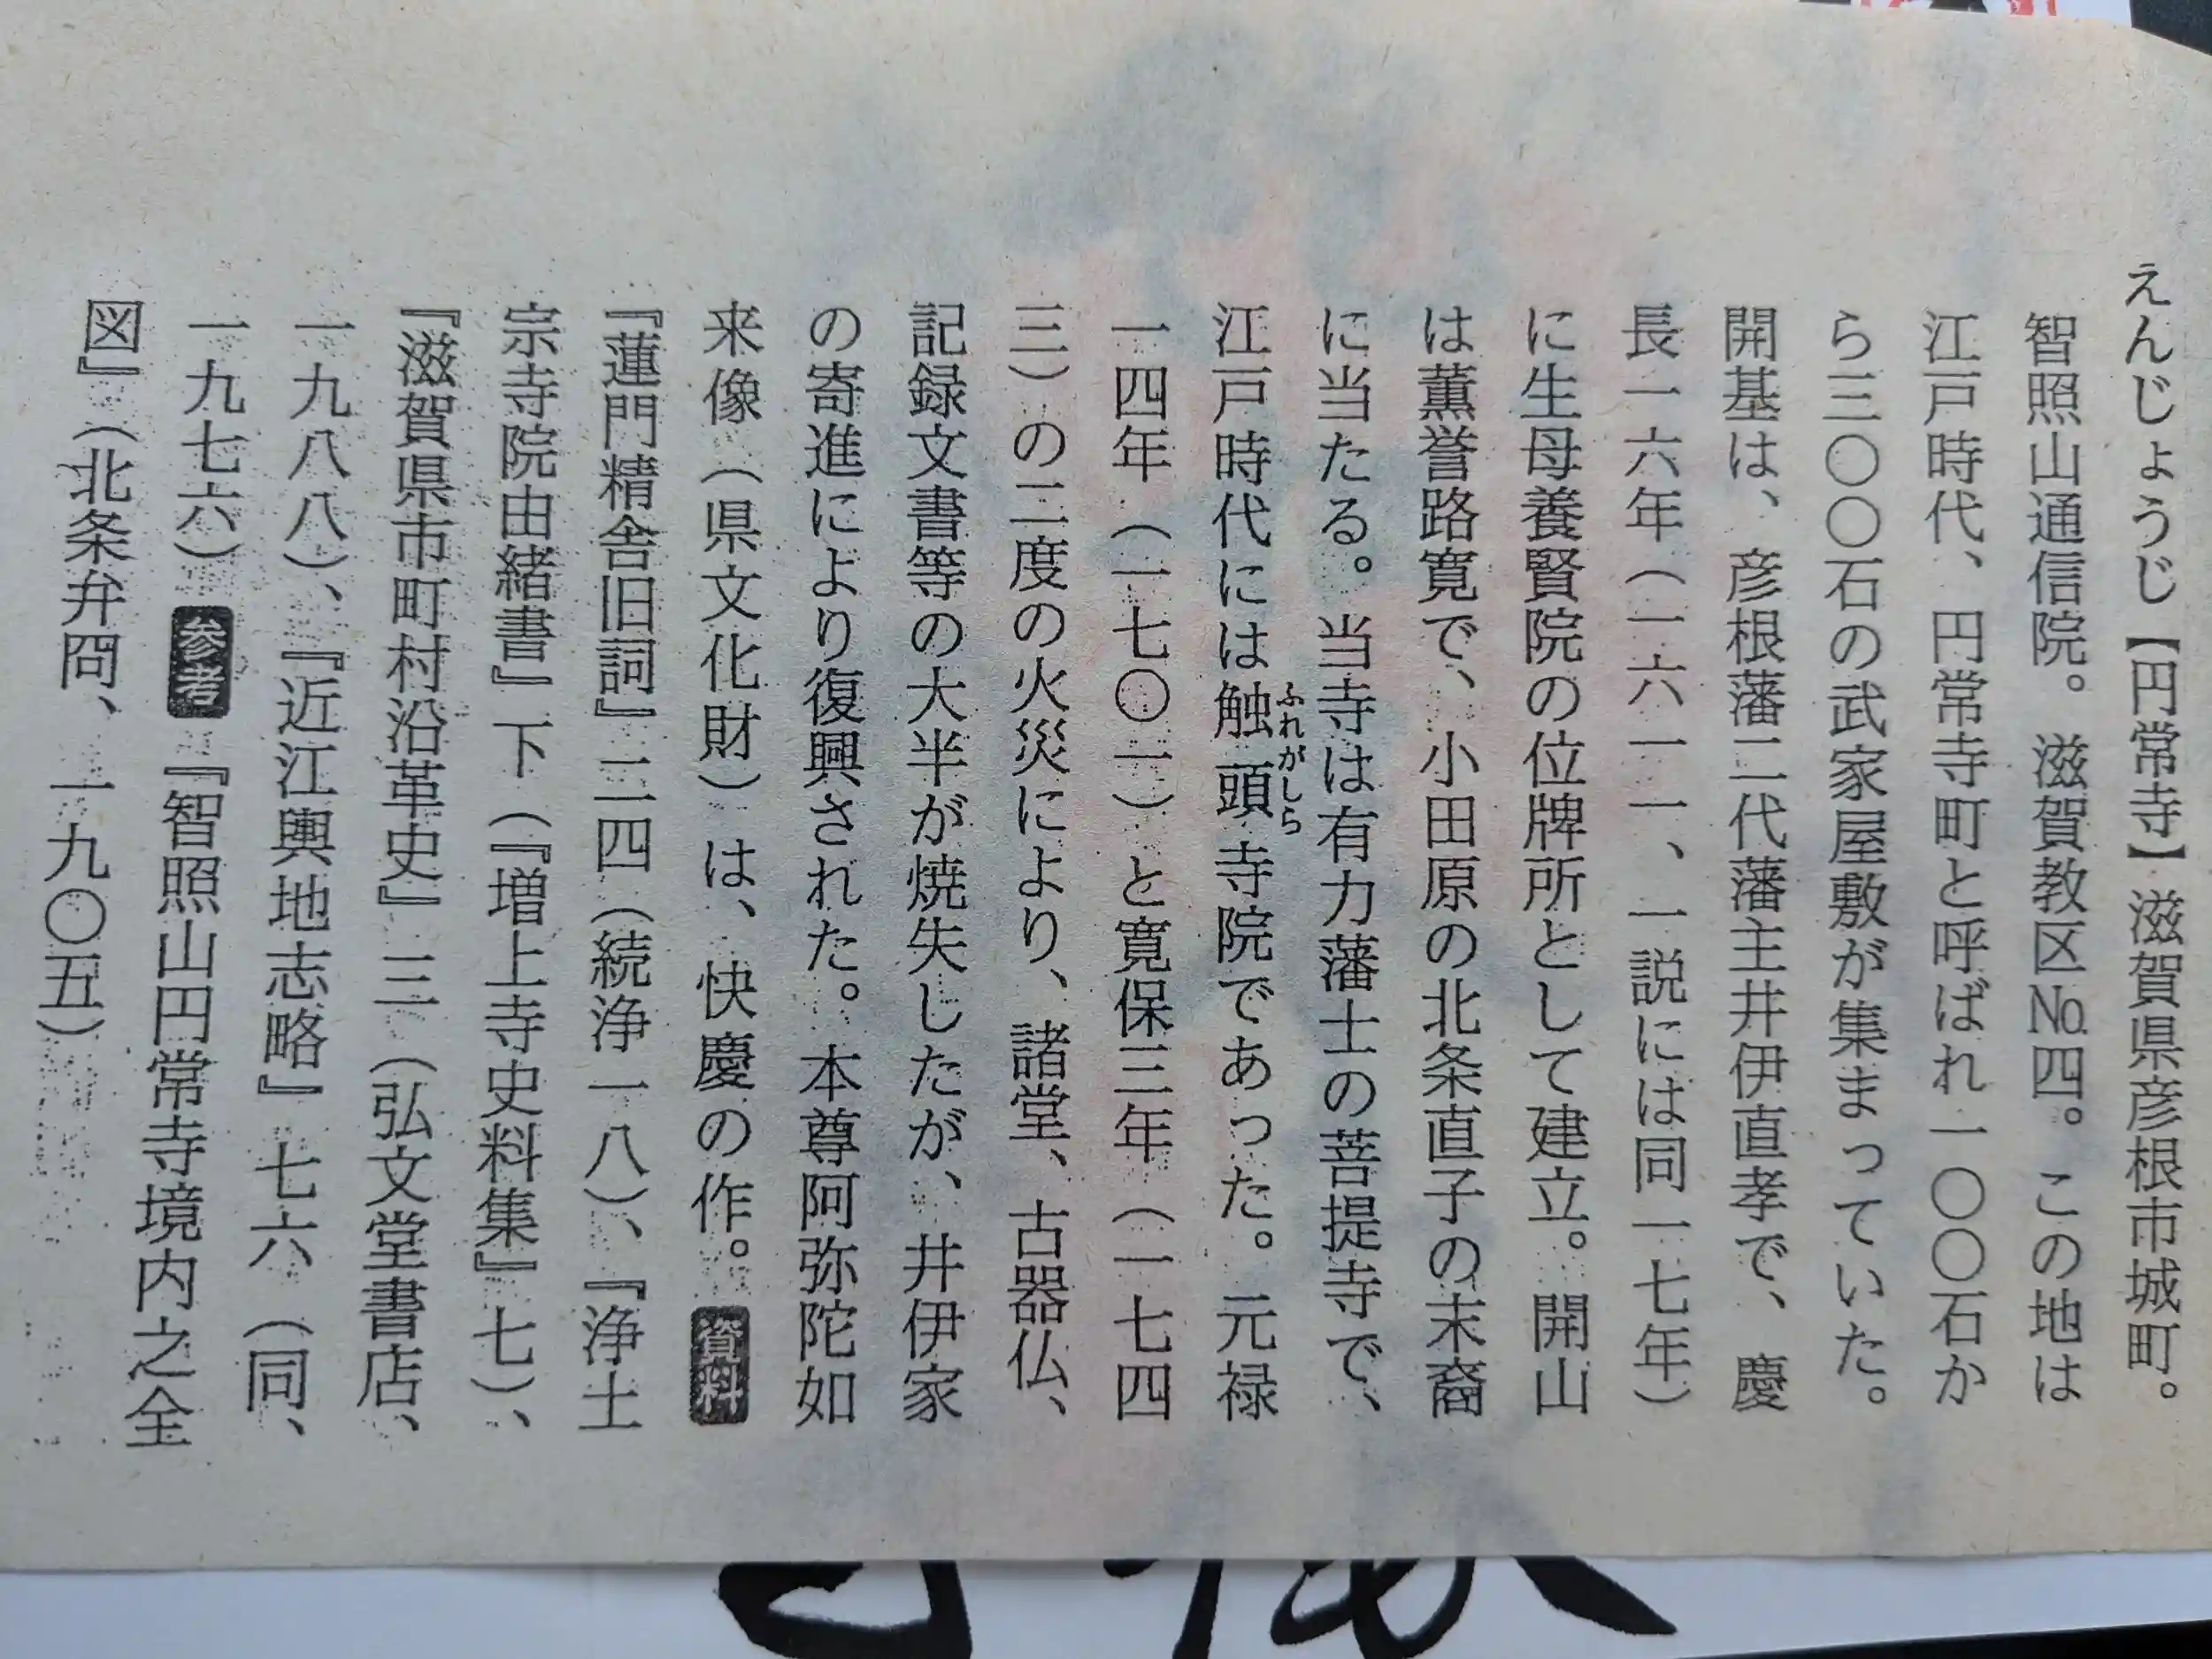 えんじょうじ【円常寺】滋賀県彦根市城町。
智照山通信院。滋賀教区№四。この地は
江戸時代、円常寺町と呼ばれ一〇〇石か
ら三〇〇石の武家屋敷が集まっていた。
開基は、彦根藩二代藩主井伊直孝で、慶
長一六年（一六一一、一説には同一七年）
に生母養賢院の位牌所として建立。開山
は薫誉路寛で、小田原の北条直子の末裔
に当たる。当寺は有力藩士の菩提寺で、
江戸時代には触頭寺院であった。元禄
ふれがしら
一四年（一七〇一）と寛保三年（一七四
三）の二度の火災により、諸堂、古器仏、
記録文書等の大半が焼失したが、井伊家
の寄進により復興された。本尊阿弥陀如
来像（県文化財）は、快慶の作。資料
『蓮門精舎旧詞』三四（続浄一八）、『浄土
宗寺院由緒書』下（『増上寺史料集』七）、
『滋賀県市町村沿革史』三（弘文堂書店、
一九八八）、『近江輿地志略』七六（同、
一九七六）参考『智照山円常寺境内之全
図』（北条弁冏、一九〇五）